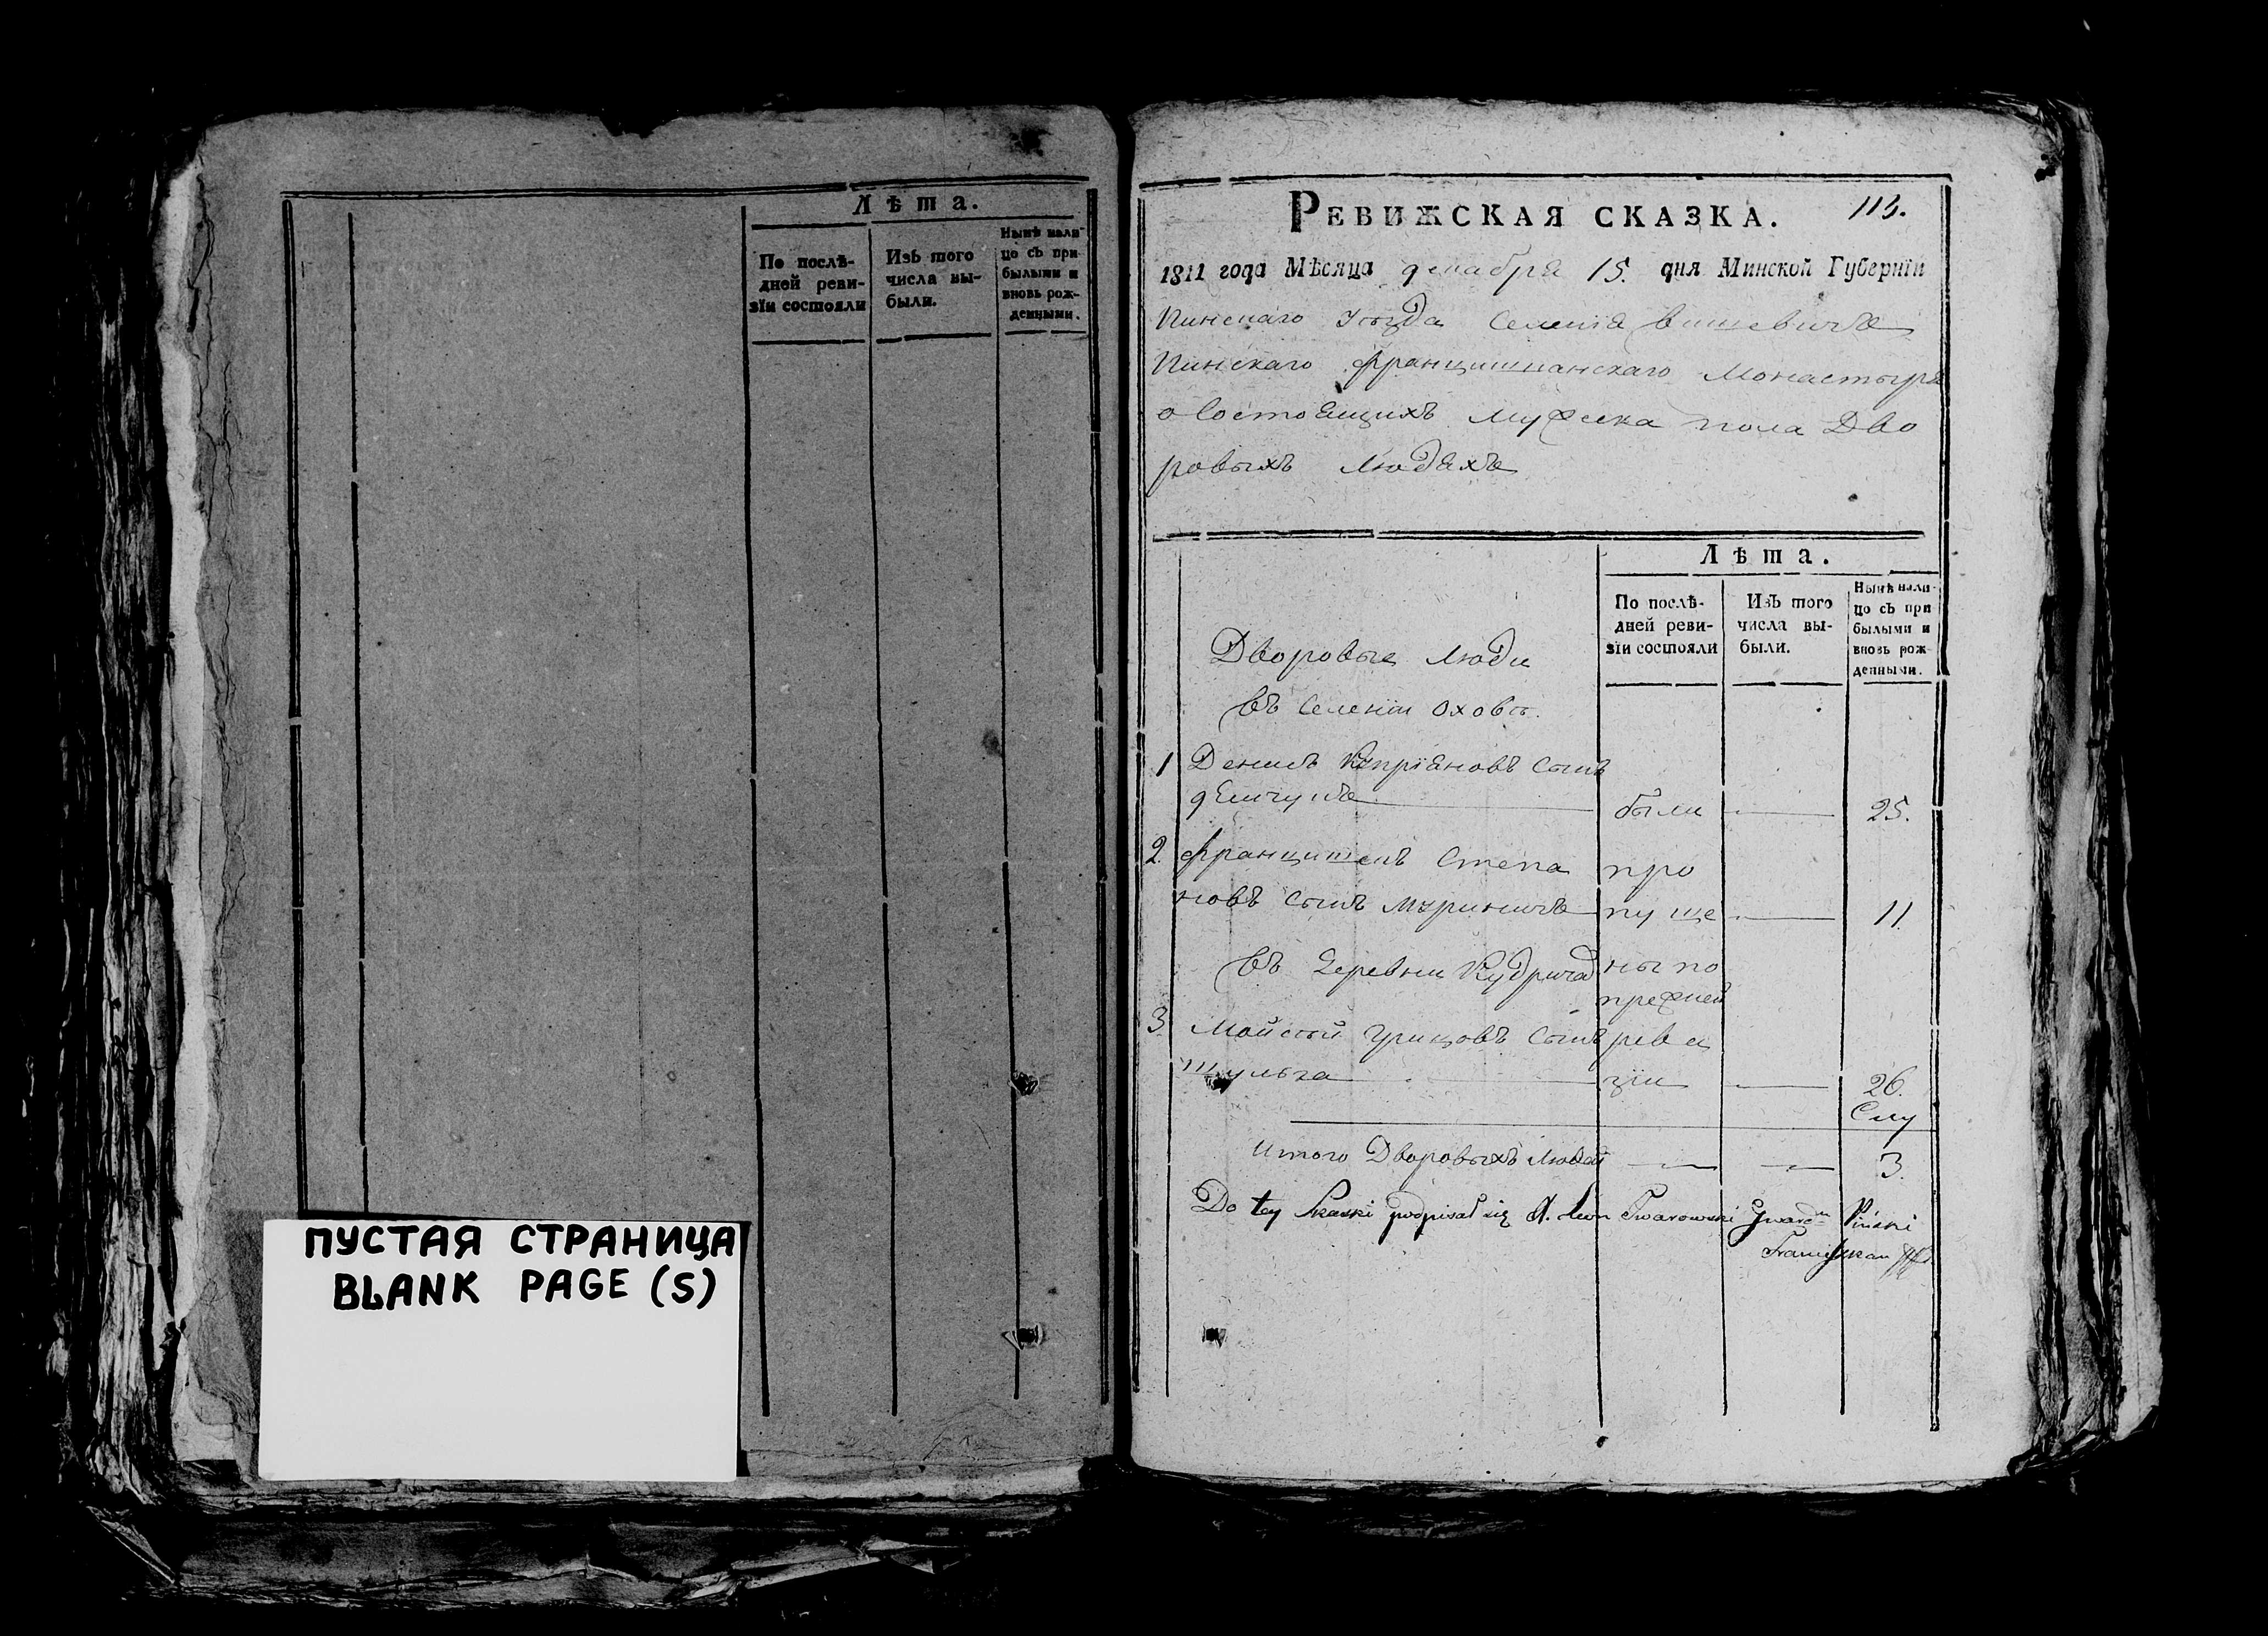 Лѣта.
По послѣ-
дней реви-
зїи состояли
Изъ того
числа вы-
были.
Нынѣ нали-
цо съ при
былыми и
вновь рож-
денными.
ПУСТАЯ СТРАНИЦА
BLANK PAGE (S)
РЕВИЖСКАЯ СКАЗКА. 113.
1811 года Мѣсяца декабря 15. дня Минской Губернїи
Пинскаго уѣзда Селенїя Вишевичъ
Пинскаго францишканскаго Монастыря
о состоящихъ мужеска пола Дво
ровыхъ людяхъ
Лѣта.
По послѣ-
дней реви-
зїи состояли
Изъ того
числа вы-
были.
Нынѣ нали-
цо съ при
былыми и
вновь рож
денными.
Дворовые люди
въ селенїи Оховѣ.
1 Денисъ Кипріяновъ сынъ
были 25.
2. францишекъ Степа про
новъ сынъ пуще 11.
въ деревни Кудричахъ ны по
прежней
3. Мойсѣй Грицовъ сынъ реви
шульга зїи 26.
Итого Дворовыхъ людей 3.
Do tey skaski podpisał się X. Leon Twarowski Gward. Piński
Franciszkan